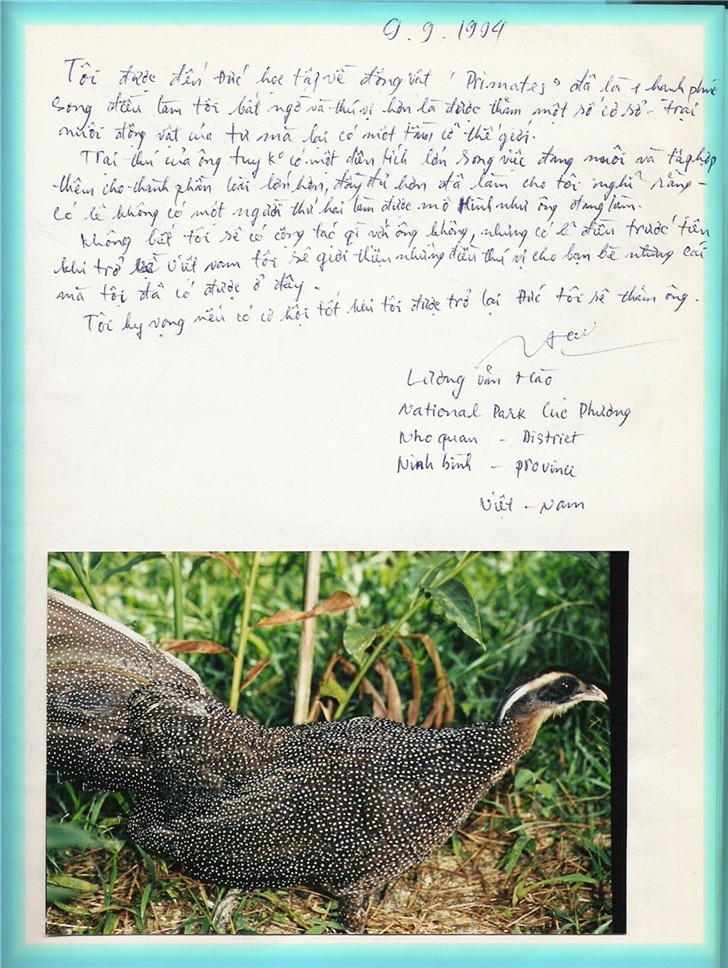 9. 9. 1994
Tôi được đến Đức học tập về động vật "Primates" đã là 1 hạnh phúc
song điều làm tôi bất ngờ và thú vị hơn là được thăm một số cơ sở - trại
nuôi động vật của tư mà lại có một tầm cỡ thế giới.
Trại thú của ông tuy k° có một diện tích lớn song việc đang nuôi và tập hợp
thêm cho thành phần loài lớn hơn, đầy đủ hơn đã làm cho tôi nghĩ rằng -
có lẽ không có một người thứ hai làm được mô hình như ông đang làm.
Không biết tôi sẽ có công tác gì với ông không, nhưng có lẽ điều trước tiên
khi trở về Việt nam tôi sẽ giới thiệu những điều thú vị cho bạn bè những cái
mà tôi đã có được ở đây.
Tôi hy vọng nếu có cơ hội tốt khi tôi được trở lại Đức tôi sẽ thăm ông.
Lương văn Hào
National Park Cúc Phương
Nho quan - District
Ninh bình - province
Việt - Nam